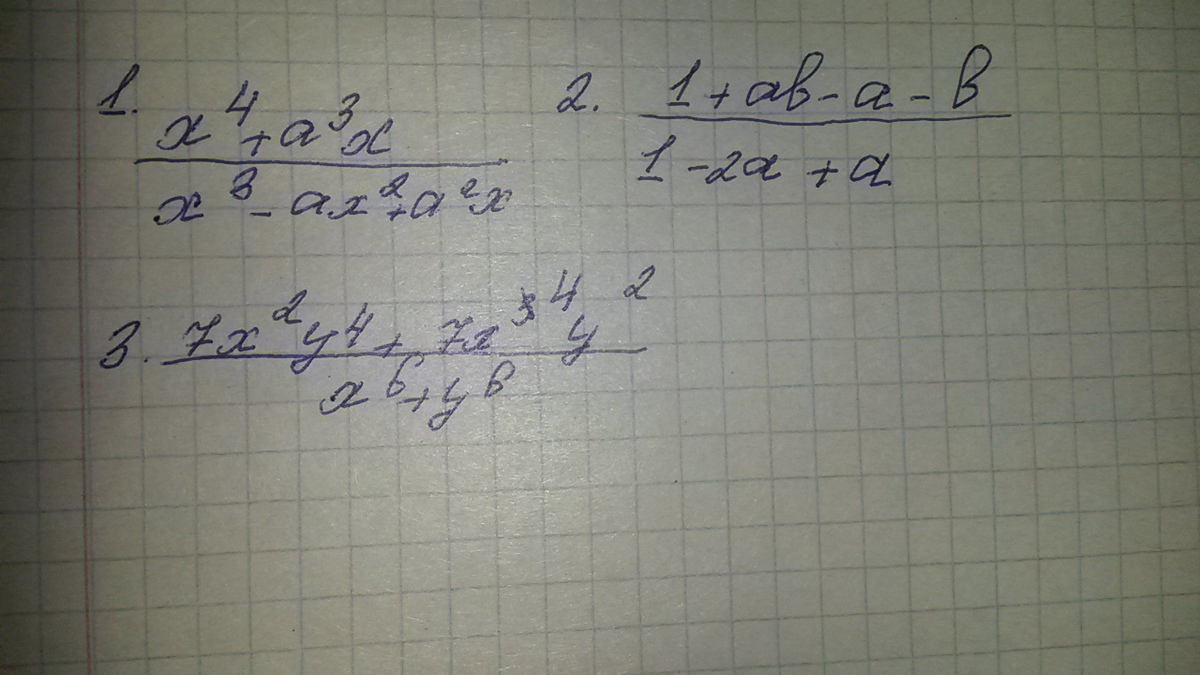 1. (x⁴ + a³x) / (x³ - ax² + a²x)
2. (1 + ab - a - b) / (1 - 2a + a)
3. (7x²y⁴ + 7x⁴y²) / (x⁶ + y⁶)